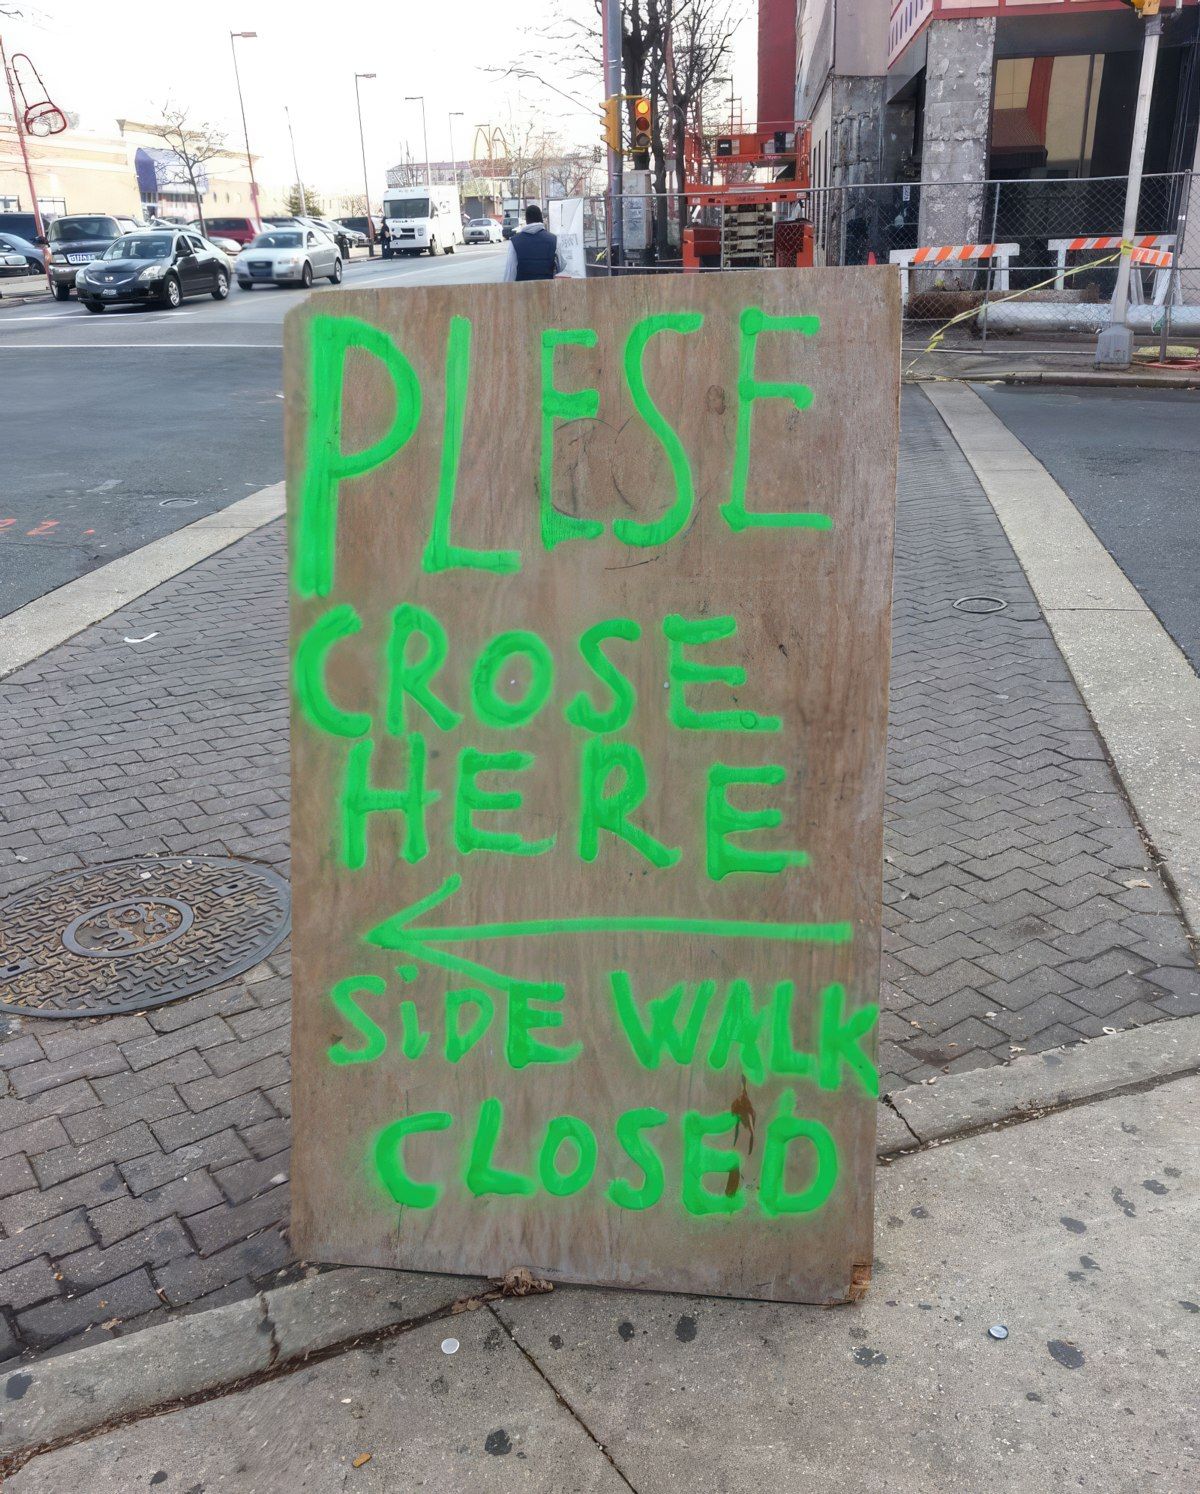 PLESE
CROSE
HERE
SiDE WALK
CLOSED